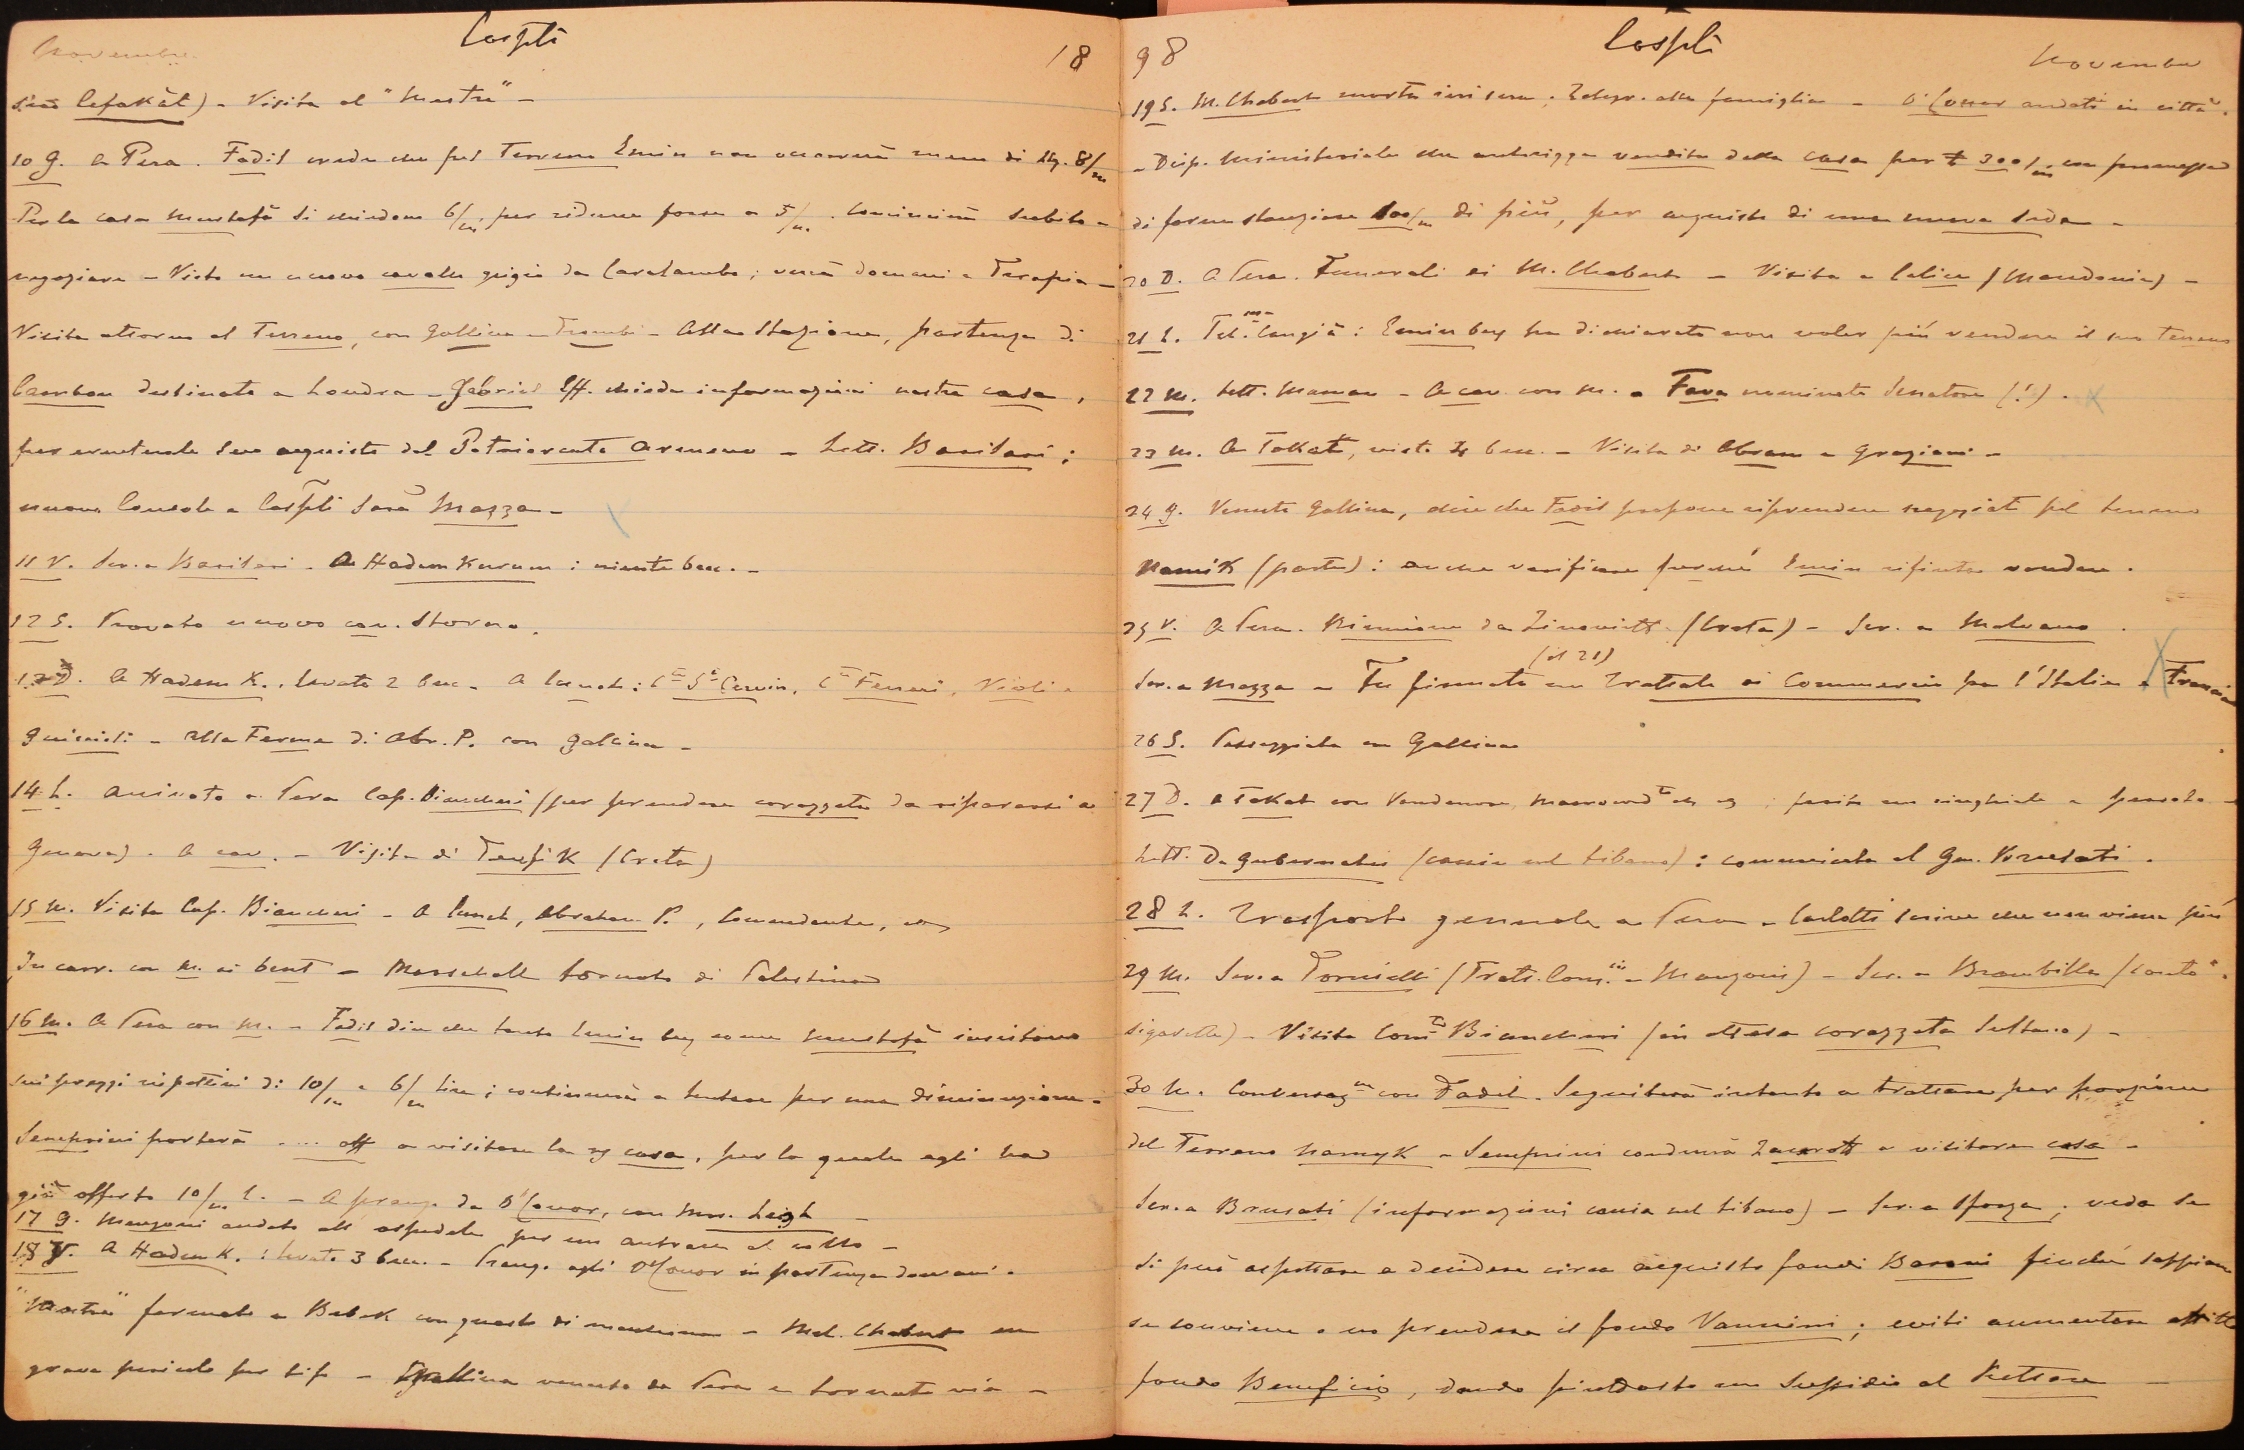 Novembre
Cospli
18
sino Cefakât) - Visita al "Mestre" -
10 G. A Pera. Fadil crede che pel Terreno Emin non occorrerà meno di Ltq. 8/m
Per la casa Mustafà si chiedono 6/m, per ridurre forse a 5/m. Comincerà subito a
negoziare - Visto un nuovo cavallo grigio da Caralambo; verrà domani a Terapia -
Visita attorno al Terreno, con Gallina e Trombi - Alla Stazione, partenza di
Cambon destinato a Londra - Gabriel Eff. chiede informazioni nostra casa,
per eventuale suo acquisto dal Patriarcato Armeno - Lett. Barilari;
nuovo Console a Cospli sarà Mazza -
11 V. Scr. a Barilari. A Hadem Kurum: niente becc. -
12 S. Provato nuovo cav. Storno.
13 D. A Hadem K., levate 2 becc - A lunch: Cte Cte Cervin, Cte Ferreri, Violi e
Guiccioli - alla Ferma di Abr. P. con Gallina -
14 L. Arrivato a Pera Cap. Biancheri (per prendere corazzata da ripararsi a
Genova). A cav. - Visita di Tewfik (Creta)
15 M. Visita Cap. Biancheri - A lunch, Abraham P., Comandante,
In carr. con M. ai bent - Marschall tornato di Palestina
16 M. A Pera con M. - Fadil dice che tanto Emin bey come Mustafà insistono
sui prezzi rispettivi di 10/m e 6/m lire; continuerà a tentare per una diminuzione -
Semprini porterà .... eff a visitare la casa, per la quale egli ha
già offerto 10/m l. - A pranzo da O'Conor, con Mrs. Leigh -
17 G. Manzoni andato all'ospedale per un antrace al collo -
18 V. A Hadem K.: levate 3 becc. - Pranzo agli O'Conor in partenza domani.
"Mestre" fermato a Bebek con guasto di macchina - Md. Chabert in
grave pericolo per tifo - Gallina venuto da Pera e tornato via -
98
Cospli
Novembre
19 S. M. Chabert morta ieri sera; Telegr. alla famiglia - O'Conor andati in città.
- Disp. Ministeriale che autorizza vendita della casa per £ 300/m, con promessa
di forse stanziare 100/m di più, per acquisto di una nuova sede -
20 D. A Pera. Funerali di M. Chabert - Visita a Calice (Macedonia) -
21 L. Tel. Cangià: Emin bey ha dichiarato non voler più vendere il suo terreno
22 M. Lett. Maman - A cav. con M. - Fava nominato Senatore (!).
23 M. A Tokat, viste 4 becc. - Visita di Abram e Graziani -
24 G. Venuto Gallina, dice che Fadil propone riprendere negoziati pel terreno
Namik (parte): anche verificare perchè Emin rifiuta vendere.
25 V. A Pera. Riunione da Zinovieff (Creta) - Scr. a Malvano.
(il 21)
Scr. a Mazza - Fu firmato un Trattato di Commercio fra l'Italia e Francia
26 S. Passeggiata con Gallina
27 D. A Tokat con Vendenore, Mavrocord.to; ferito un cinghiale e passato -
Lett. De Gubernatis (caccia nel Libano): comunicata al Gen. Brusati.
28 L. Trasporto generale a Pera - Carlotti scrive che non viene più
29 M. Scr. a Tornielli (Tratt. Com. e Manzoni) - Scr. a Brambilla (conto
sigarette) - Visita Com.te Biancheri (in attesa corazzata Sultano) -
30 M. Conversaz.ne con Fadil. Seguiterà intanto a trattare per porzione
del Terreno Namyk - Semprini condurrà a visitare casa -
Scr. a Brusati (informazioni caccia nel Libano) - Scr. a Sforza; veda se
si può aspettare a decidere circa acquisto fondi Baroni finchè sappiamo
se conviene o no prendere il fondo Vannini; eviti aumentare affitto
fondo Beneficio, dando piuttosto un sussidio al Rettore -